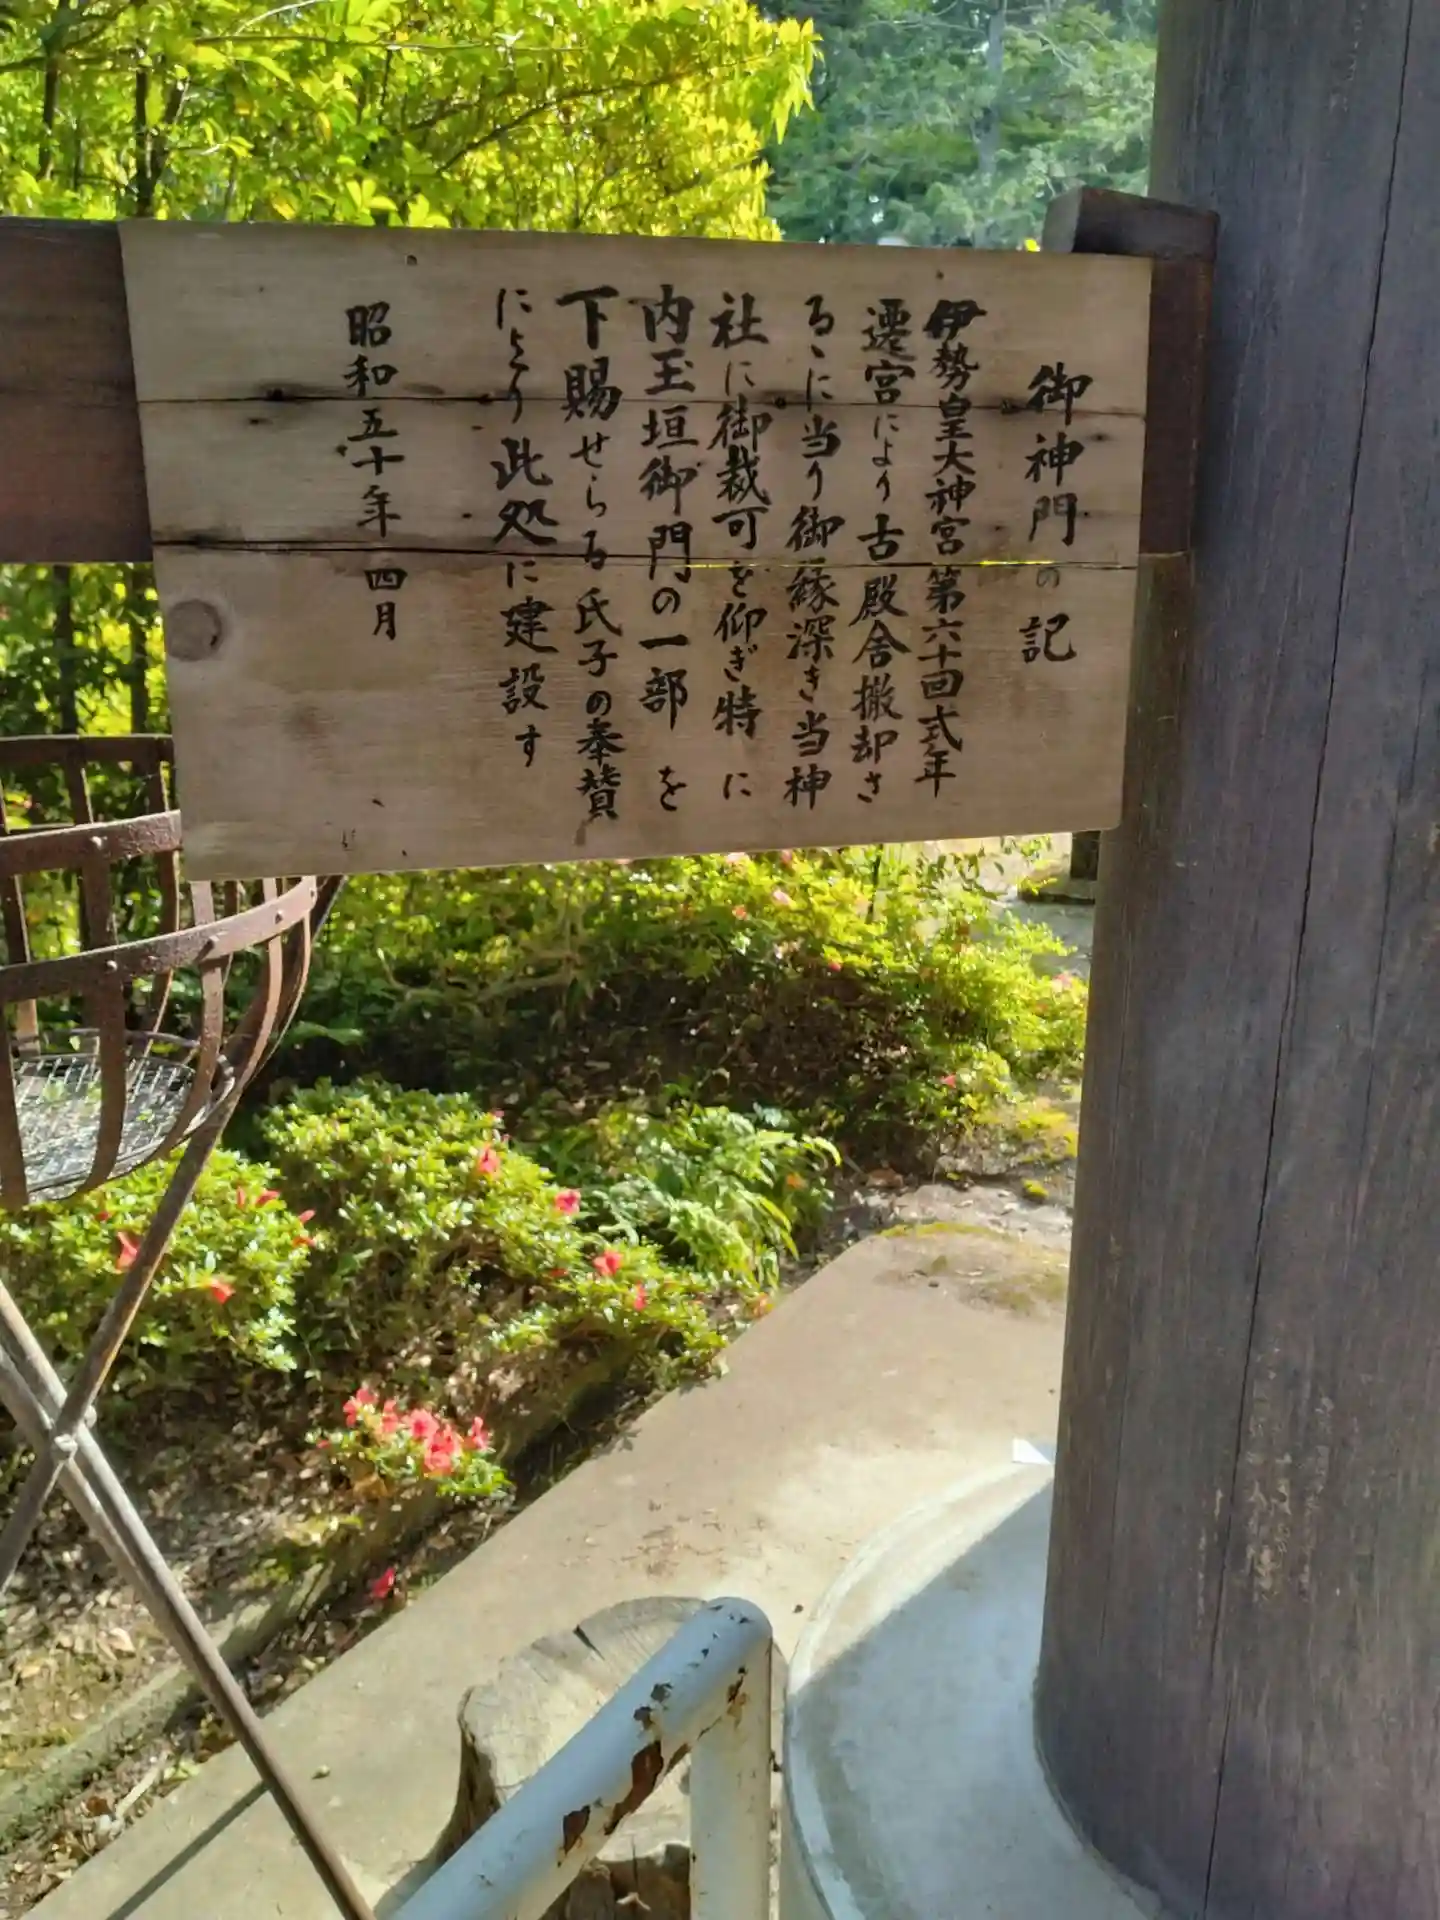 御神門の記
伊勢皇大神宮第六十回式年
遷宮により古殿舎撤却さ
るゝに当り御縁深き当神
社に御裁可を仰ぎ特に
内玉垣御門の一部を
下賜せらる氏子の奉賛
により此処に建設す
昭和五十年四月